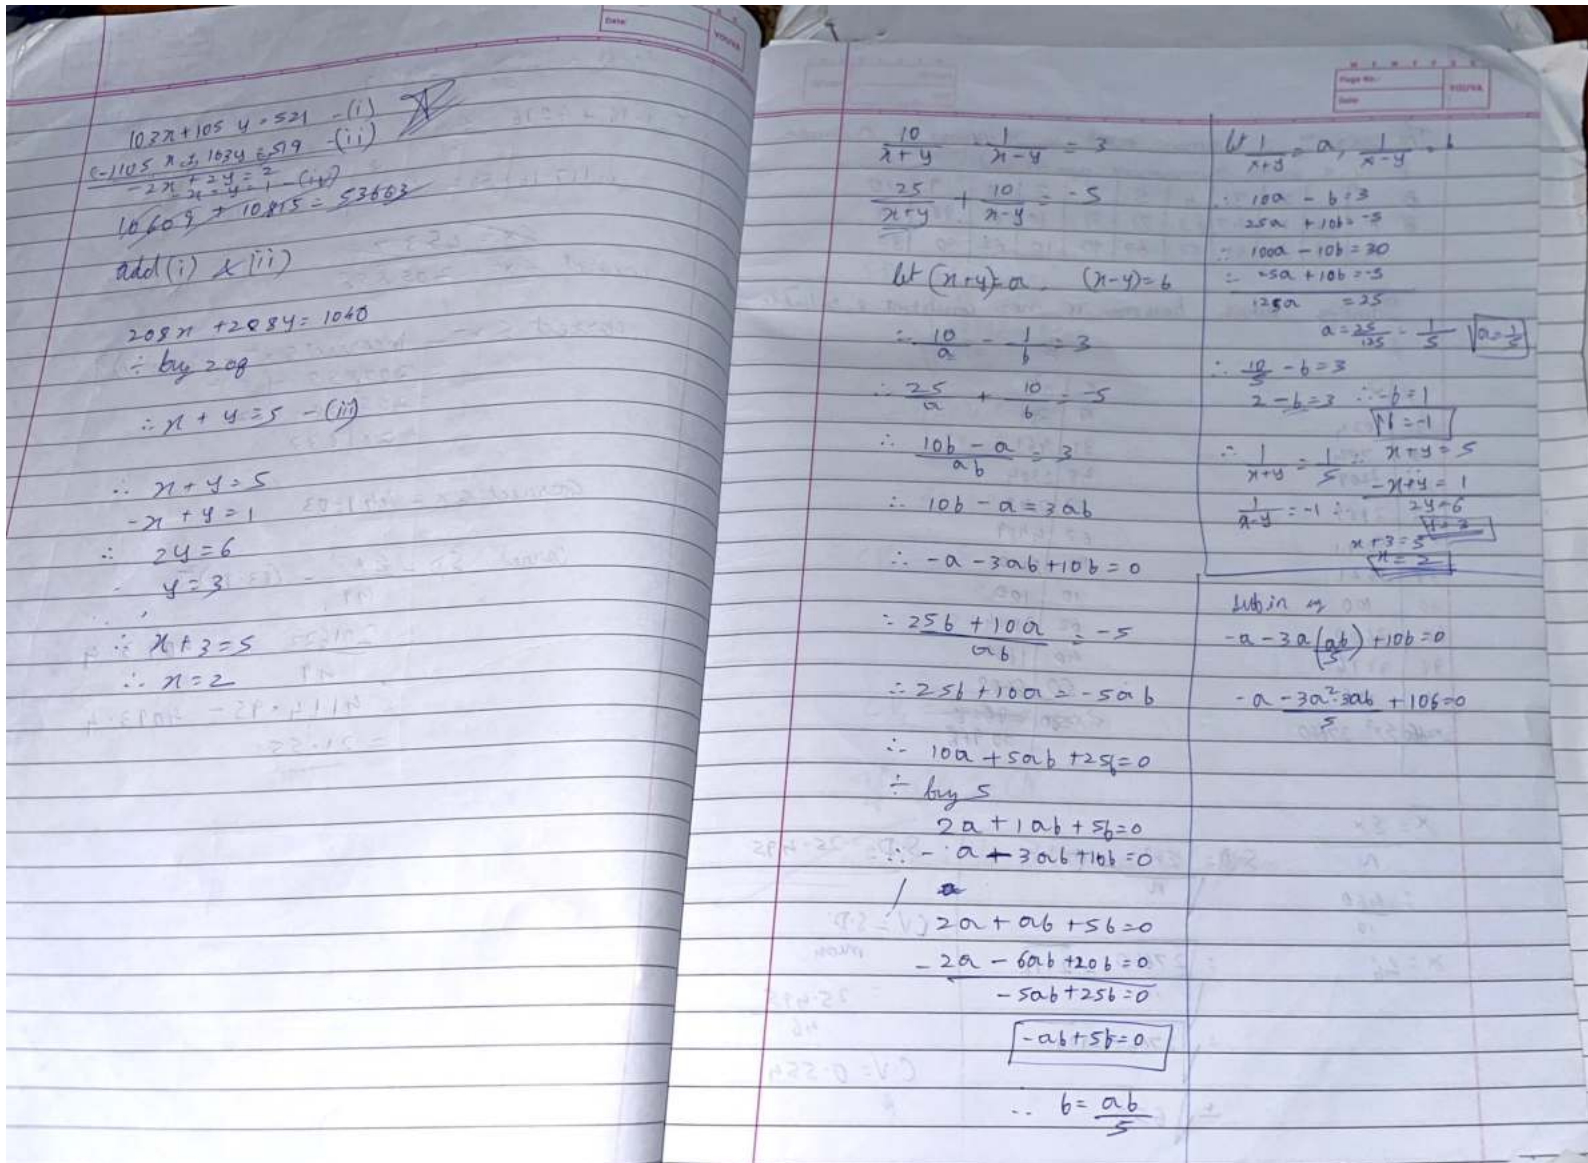 Date:
YOUVA
103x + 105 y = 521 - (i)
(-)105 x + 103y = 519 - (ii)
-2x + 2y = 2
-x + y = 1 - (iv)
10609 + 10815 = 53663
add (i) & (ii)
208x + 208y = 1040
÷ by 208
∴ x + y = 5 - (iii)
∴ x + y = 5
-x + y = 1
∴ 2y = 6
y = 3
∴ x + 3 = 5
∴ x = 2
Page No.:
Date:
YOUVA
10/(x+y) - 1/(x-y) = 3
25/(x+y) + 10/(x-y) = -5
let (x+y)=a, (x-y)=b
∴ 10/a - 1/b = 3
∴ 25/a + 10/b = -5
∴ (10b - a)/ab = 3
∴ 10b - a = 3ab
∴ -a - 3ab + 10b = 0
∴ (25b + 10a)/ab = -5
∴ 25b + 10a = -5ab
∴ 10a + 5ab + 25b = 0
÷ by 5
2a + 1ab + 5b = 0
∴ - a + 3ab + 10b = 0
2a + ab + 5b = 0
- 2a - 6ab + 20b = 0
- 5ab + 25b = 0
-ab + 5b = 0
∴ b = ab/5
let 1/(x+y) = a, 1/(x-y) = b
∴ 10a - b = 3
25a + 10b = -5
∴ 100a - 10b = 30
∴ 25a + 10b = -5
125a = 25
a = 25/125 = 1/5 a = 1/5
∴ 10/5 - b = 3
2 - b = 3 ∴ -b = 1
b = -1
∴ 1/(x+y) = 1/5 ∴ x + y = 5
-x + y = 1
1/(x-y) = -1 ∴ 2y = 6
y = 3
x + 3 = 5
x = 2
sub in eq
-a - 3a(ab/5) + 10b = 0
-a - 3a² 3ab/5 + 10b = 0